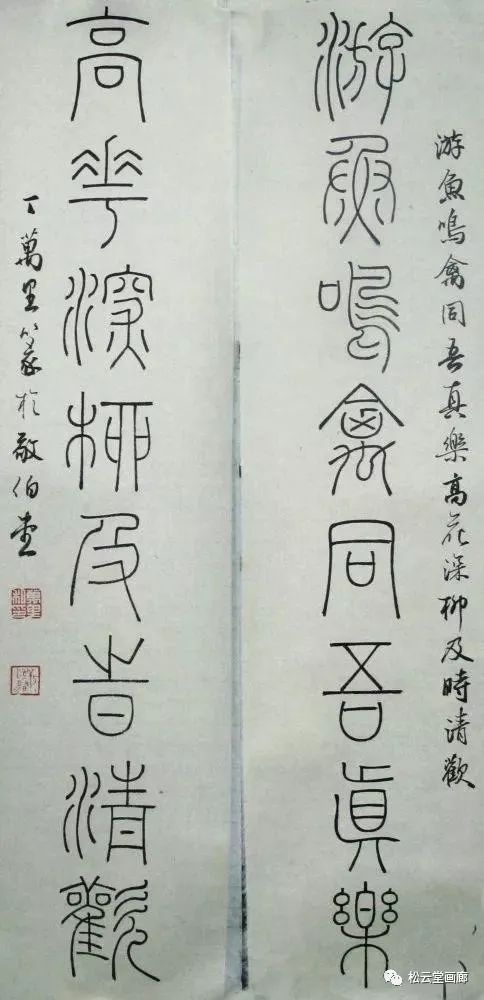 游魚鳴禽同吾真樂高花深柳及時清歡
游魚鳴禽同吾眞樂
高華深柳及旹清歡
丁萬里篆於敬伯
松云堂画廊